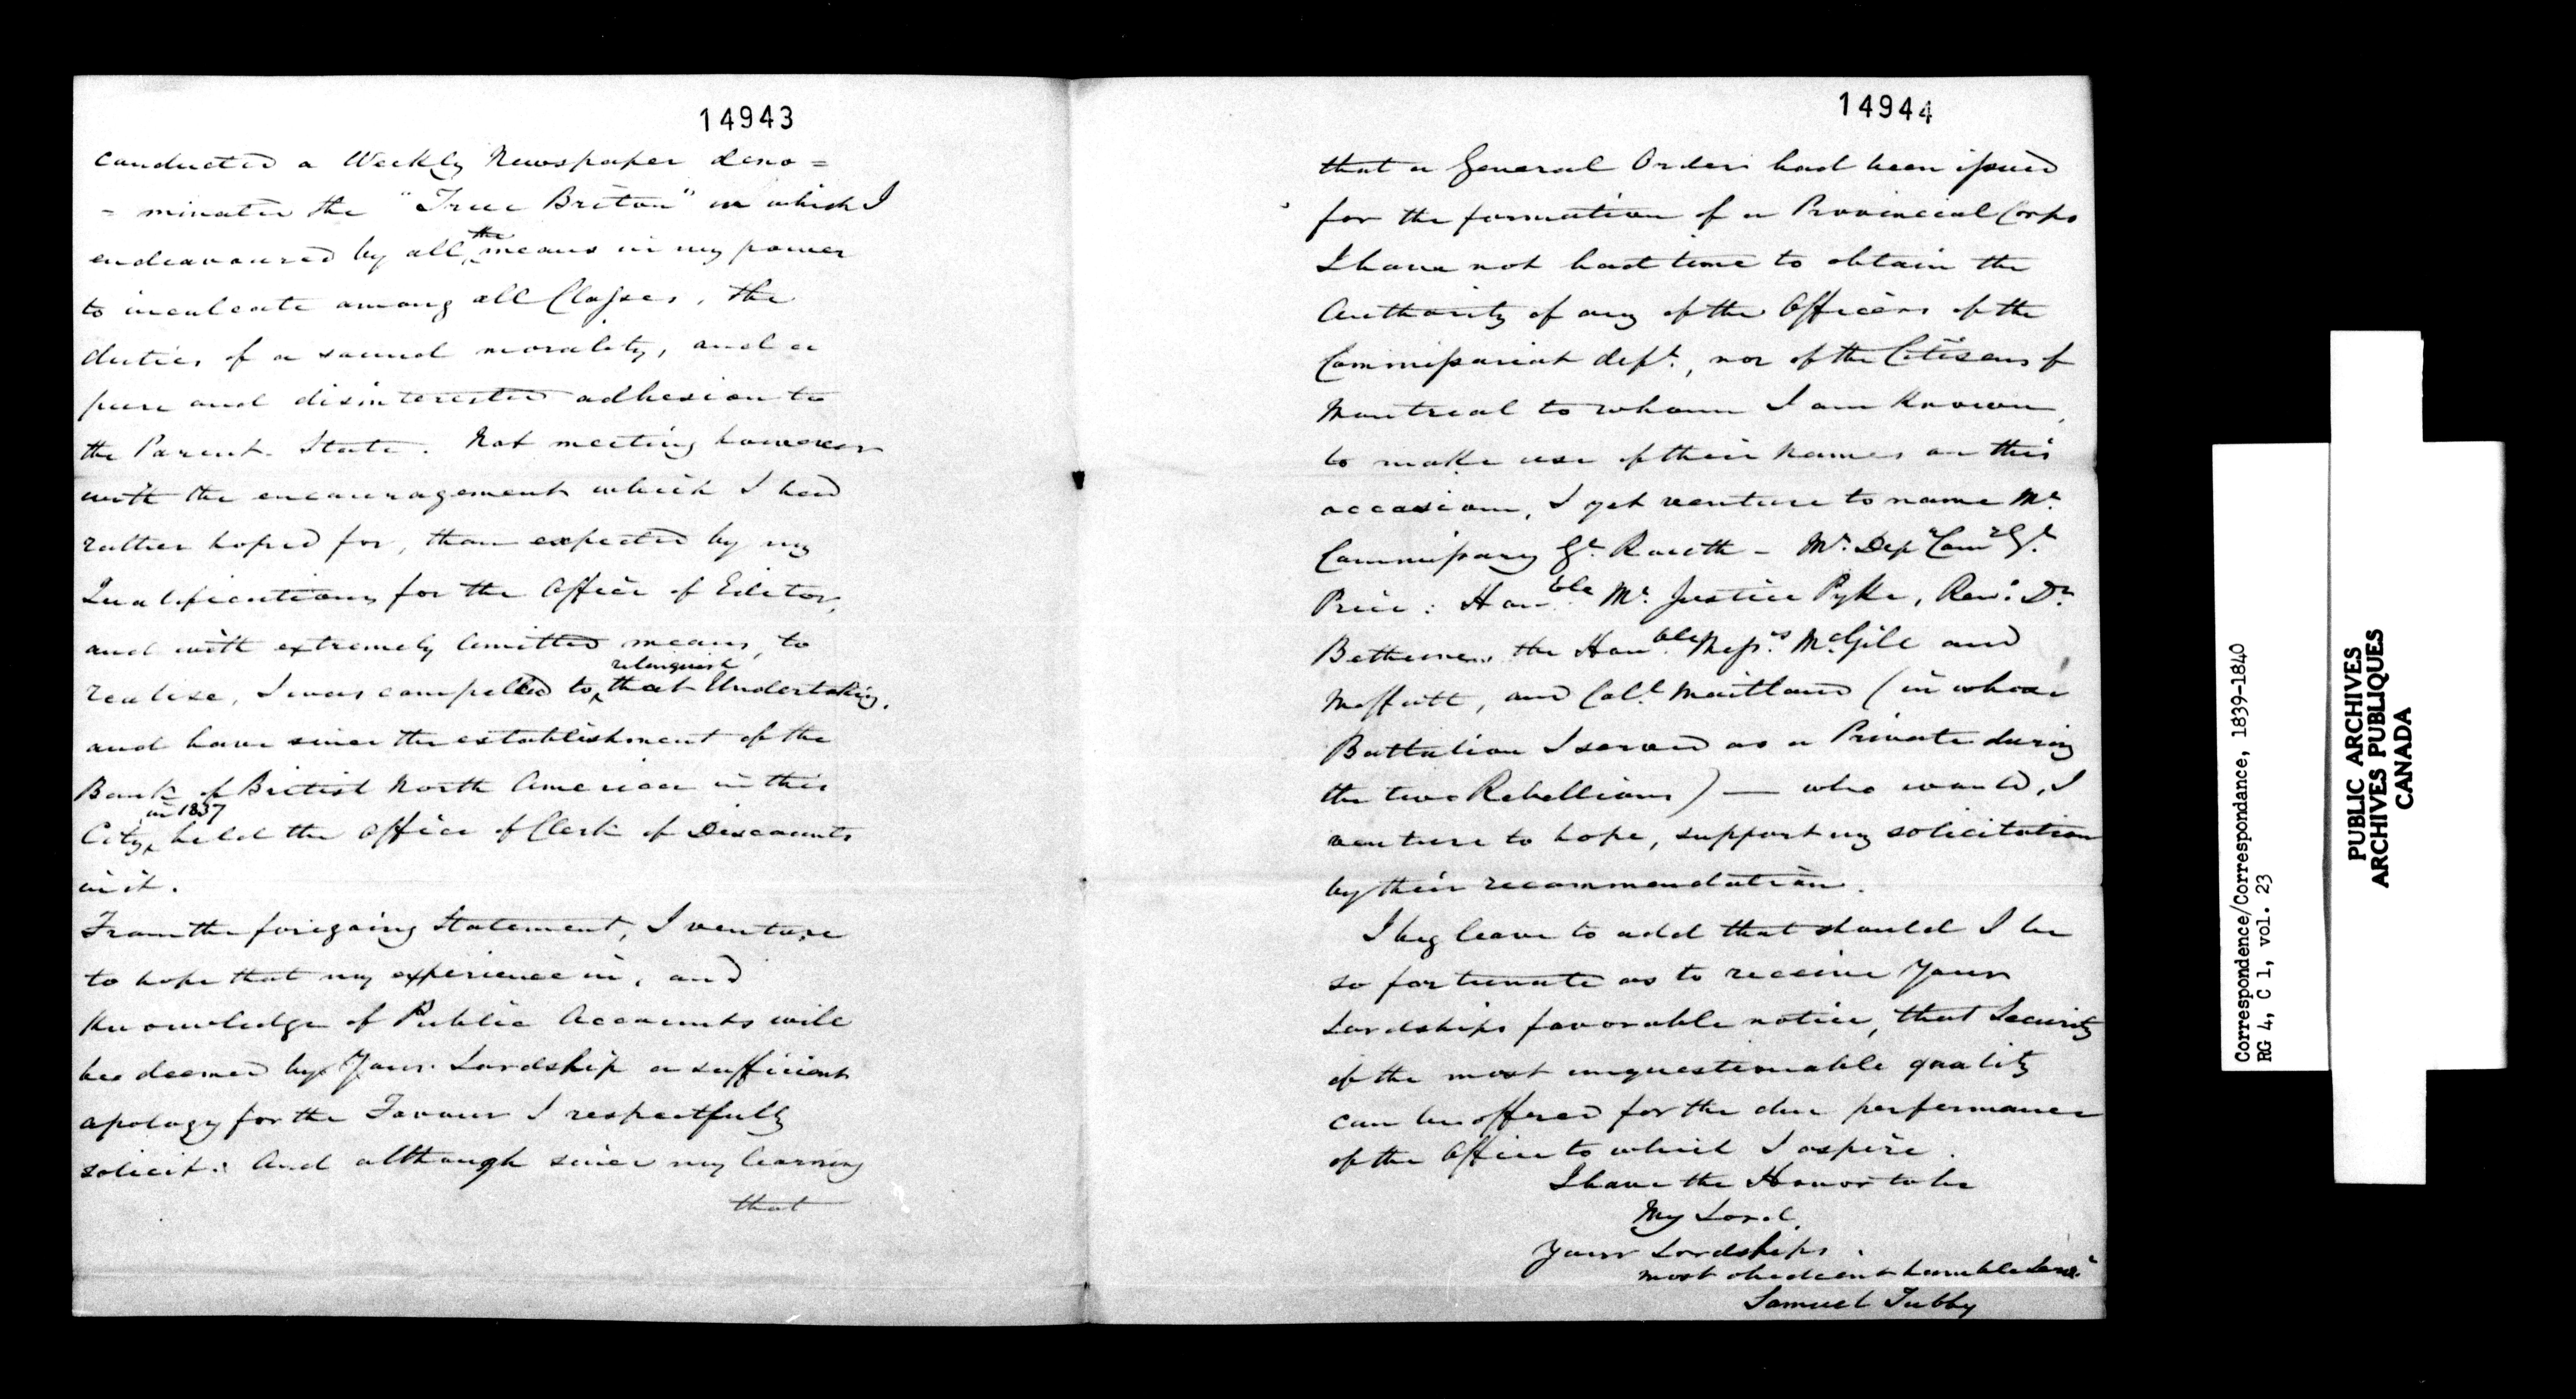 14943
conducted a Weekly Newspaper deno=
= minated the "True Briton" in which I
endeavoured by all the means in my power
to inculcate among all Classes, the
duties of a sound morality, and a
pure and disinterested adhesion to
the Parent State. Not meeting however
with the encouragement which I had
rather hoped for, than expected by my
Qualifications for the Office of Editor,
and with extremely limitted means, to
realise, I was compelled to relinquish that Undertaking,
and have since the establishment of the
Bank of British North America in this
City, in 1837 held the Office of Clerk of Discounts
in it.
From the foregoing Statement, I venture
to hope that my experience in, and
Knowledge of Public Accounts will
be deemed by Your Lordship a sufficient
apology for the Favour I respectfully
solicit: And although since my learning
that
14944
that a General Order had been issued
for the formation of a Provincial Corps
I have not had time to obtain the
Authority of any of the Officers of the
Commissariat dept., nor of the Citizens of
Montreal to whom I am Known,
to make use of their Names on this
occasion, I yet venture to name Mr.
Commissary Gl. Routh - Mr. Depy Comy Gl.
Price: Honble Mr. Justice Pyke, Revd. Dr.
Bethune, the Honble Messrs McGill and
Moffatt, and Coll. Maitland (in whose
Battalion I served as a Private during
the two Rebellions) — who would, I
venture to hope, support my solicitation
by their recommendation.
I beg leave to add that should I be
so fortunate as to receive Your
Lordships favorable notice, that Security
of the most unquestionable quality
can be offered for the due performance
of the Office to which I aspire.
I have the Honor to be
My Lord,
Your Lordships
most obedient humble Servt.
Samuel Tubby
Correspondence/Correspondance, 1839-1840
RG 4, C 1, vol. 23
PUBLIC ARCHIVES
ARCHIVES PUBLIQUES
CANADA